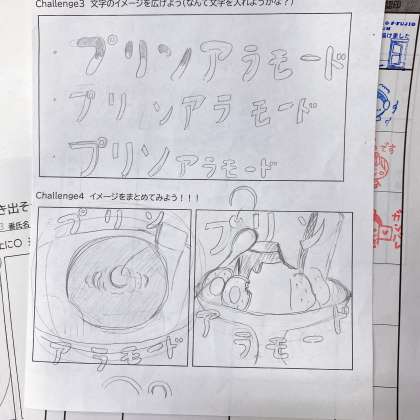 Challenge3 文字のイメージを広げよう(なんて文字を入れようかな?)
・プリンアラモード
・プリンアラモード
・プリンアラモード
Challenge4 イメージをまとめてみよう!!!
プリン
アラモード
プリン
アラモード
き出そ
です